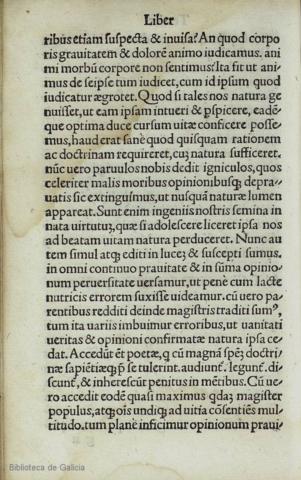 Liber
ribus etiam suspecta & inuisa? An quod corpo
ris grauitatem & dolorē animo iudicamus. ani
mi morbū corpore non sentimus? Ita fit ut ani-
mus de seipse tum iudicet, cum id ipsum quod
iudicatur ægrotet. Quod si tales nos natura ge
nuisset, ut eam ipsam intueri & pspicere, eadē-
que optima duce cursum uitæ conficere posse-
mus, haud erat sanè quod quisquam rationem
ac doctrinam requireret, cuȝ natura sufficeret.
nūc uero paruulos nobis dedit igniculos, quos
celeriter malis moribus opinionibusqȝ depra-
uatis sic extinguimus, ut nusquā naturæ lumen
appareat. Sunt enim ingeniis nostris semina in
nata uirtutuȝ, quæ si adolescere liceret ipsa nos
ad beatam uitam natura perduceret. Nunc au
tem simul atqȝ editi in luceȝ & suscepti sumus.
in omni continuo prauitate & in sūma opinio-
num peruersitate uersamur, ut penè cum lacte
nutricis errorem suxisse uideamur. cū uero pa-
rentibus redditi deinde magistris traditi sumꝰ,
tum ita uariis imbuimur erroribus, ut uanitati
ueritas & opinioni confirmatæ natura ipsa ce-
dat. Accedūt ēt poetæ, q cū magnā speȝ doctri/
næ sapiētiæqȝ p se tulerint. audiunt̄. legunt̄. di-
scunt̄, & inherescūt penitus in mētibus. Cū ue-
ro accedit eodē quasi maximus qdaȝ magister
populus, atqȝ oīs undiqȝ ad uitia cōsentiēs mul-
titudo. tum planè inficimur opinionum praui-
Biblioteca de Galicia